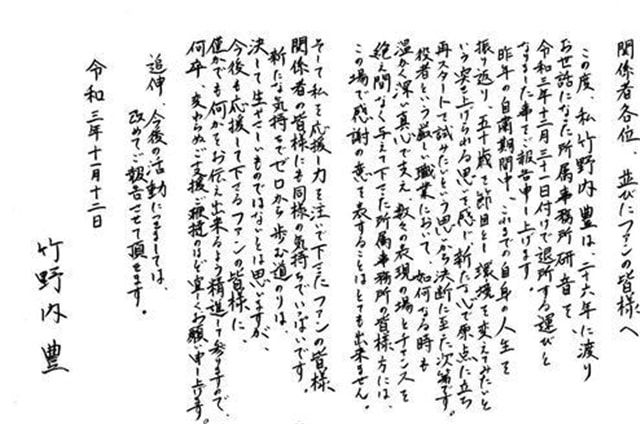 関係者各位、並びにファンの皆様へ
この度、私竹野内豊は、二十六年に渡り
お世話になった所属事務所研音を、
令和三年十二月三十一日付けで退所する運びと
なりました事をご報告申し上げます。
昨年の自粛期間中、これまでの自身の人生を
振り返り、五十歳を節目とし環境を変えてみたいと
いう声を上げられる思いを感じ新たな心で原点に立ち
再スタートして試みたいという思いから決断に至った次第です。
役者という厳しい職業において、如何なる時も
温かく深い真心で支え、数々の表現の場とチャンスを
絶え間なく与えて下さった所属事務所の皆様方には、
この場で感謝の意を表することはとても出来ません。
そして私を応援し力を注いで下さったファンの皆様、
関係者の皆様にも同様の気持ちでいっぱいです。
新たな気持ちでゼロから歩む道のりは、
決して生やさしいものではないとは思いますが、
今後も応援して下さるファンの皆様に、
僅かでも何かをお伝え出来るよう精進して参りますので、
何卒、変わらぬご支援ご鞭撻のほど宜しくお願い申し上げます。
追伸、今後の活動につきましては、
改めてご報告させて頂きます。
令和三年十一月十二日
竹野内豊